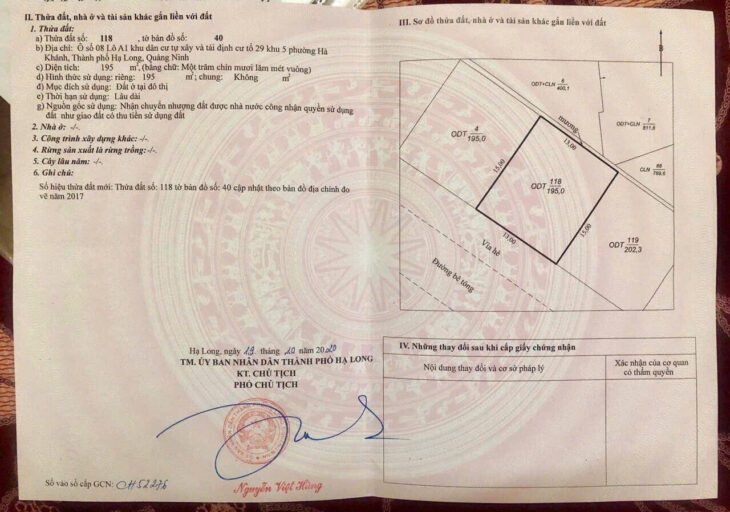 II. Thửa đất, nhà ở và tài sản khác gắn liền với đất
1. Thửa đất:
a) Thửa đất số: 118 , tờ bản đồ số: 40
b) Địa chỉ: Ô số 08 Lô A1 khu dân cư tự xây và tái định cư tổ 29 khu 5 phường Hà
Khánh, Thành phố Hạ Long, Quảng Ninh
c) Diện tích: 195 m², (bằng chữ: Một trăm chín mươi lăm mét vuông)
d) Hình thức sử dụng: riêng: 195 m²; chung: Không m²
đ) Mục đích sử dụng: Đất ở tại đô thị
e) Thời hạn sử dụng: Lâu dài
g) Nguồn gốc sử dụng: Nhận chuyển nhượng đất được nhà nước công nhận quyền sử dụng
đất như giao đất có thu tiền sử dụng đất
2. Nhà ở: -/-
3. Công trình xây dựng khác: -/-
4. Rừng sản xuất là rừng trồng: -/-
5. Cây lâu năm: -/-
6. Ghi chú:
Số hiệu thửa đất mới: Thửa đất số: 118 tờ bản đồ số: 40 cập nhật theo bản đồ địa chính đo
vẽ năm 2017
Hạ Long, ngày 19 tháng 10 năm 2020
TM. ỦY BAN NHÂN DÂN THÀNH PHỐ HẠ LONG
KT. CHỦ TỊCH
PHÓ CHỦ TỊCH
Nguyễn Việt Hùng
Số vào sổ cấp GCN: CH52276
III. Sơ đồ thửa đất, nhà ở và tài sản khác gắn liền với đất
B
ODT+CLN 6
400,1
ODT+CLN 7
811,6
mương
ODT 4
195,0
13,00
15,00
ODT 118
195,0
CLN
13,00
15,00
ODT 119
202,3
Vỉa hè
Đường bê tông
IV. Những thay đổi sau khi cấp giấy chứng nhận
Nội dung thay đổi và cơ sở pháp lý
Xác nhận của cơ quan
có thẩm quyền